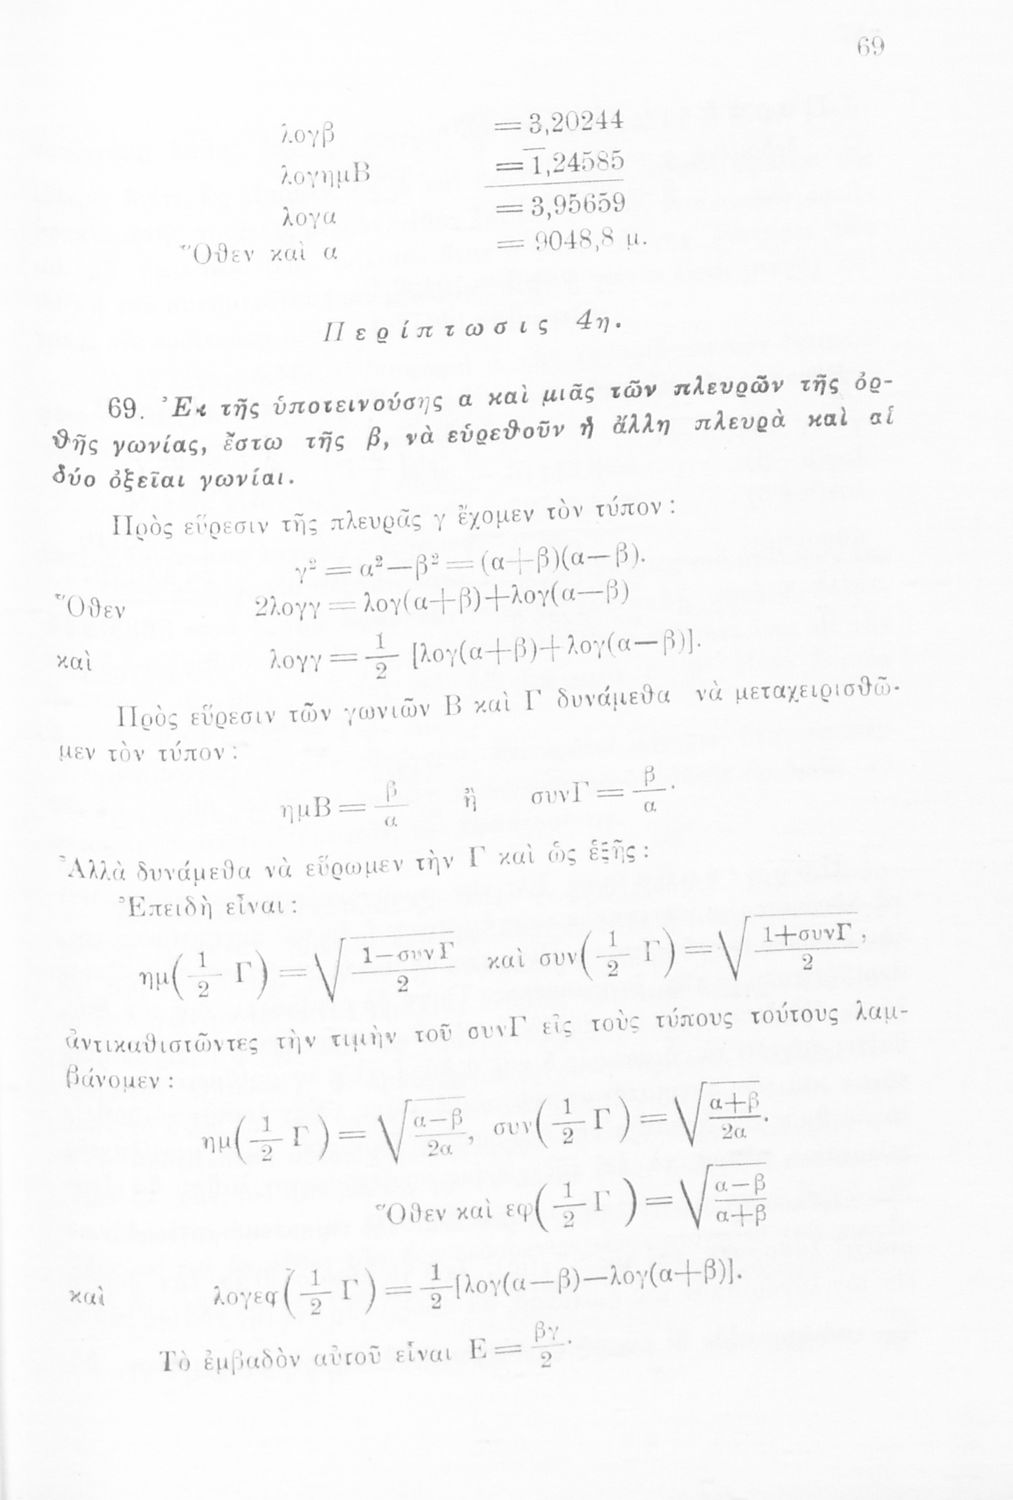 69
λογβ = 3,20244
λογημΒ = 1̅,24585
λογα = 3,95659
Ὅθεν καὶ α = 9048,8 μ.
Περίπτωσις 4η.
69. Ἐκ τῆς ὑποτεινούσης α καὶ μιᾶς τῶν πλευρῶν τῆς ὀρ-
θῆς γωνίας, ἔστω τῆς β, νὰ εὑρεθοῦν ἡ ἄλλη πλευρὰ καὶ αἱ
δύο ὀξεῖαι γωνίαι.
Πρὸς εὕρεσιν τῆς πλευρᾶς γ ἔχομεν τὸν τύπον :
γ² = α²—β² = (α+β)(α—β).
Ὅθεν 2λογγ = λογ(α+β)+λογ(α—β)
καὶ λογγ = 1/2 [λογ(α+β)+λογ(α—β)].
Πρὸς εὕρεσιν τῶν γωνιῶν Β καὶ Γ δυνάμεθα νὰ μεταχειρισθῶ-
μεν τὸν τύπον :
ημΒ = β/α ἢ συνΓ = β/α.
Ἀλλὰ δυνάμεθα νὰ εὕρωμεν τὴν Γ καὶ ὡς ἑξῆς :
Ἐπειδὴ εἶναι :
ημ(1/2 Γ) = √(1—συνΓ/2) καὶ συν(1/2 Γ) = √(1+συνΓ/2),
ἀντικαθιστῶντες τὴν τιμὴν τοῦ συνΓ εἰς τοὺς τύπους τούτους λαμ-
βάνομεν :
ημ(1/2 Γ) = √(α—β/2α), συν(1/2 Γ) = √(α+β/2α).
Ὅθεν καὶ εφ(1/2 Γ) = √(α—β/α+β)
καὶ λογεφ(1/2 Γ) = 1/2 [λογ(α—β)—λογ(α+β)].
Τὸ ἐμβαδὸν αὐτοῦ εἶναι Ε = βγ/2.